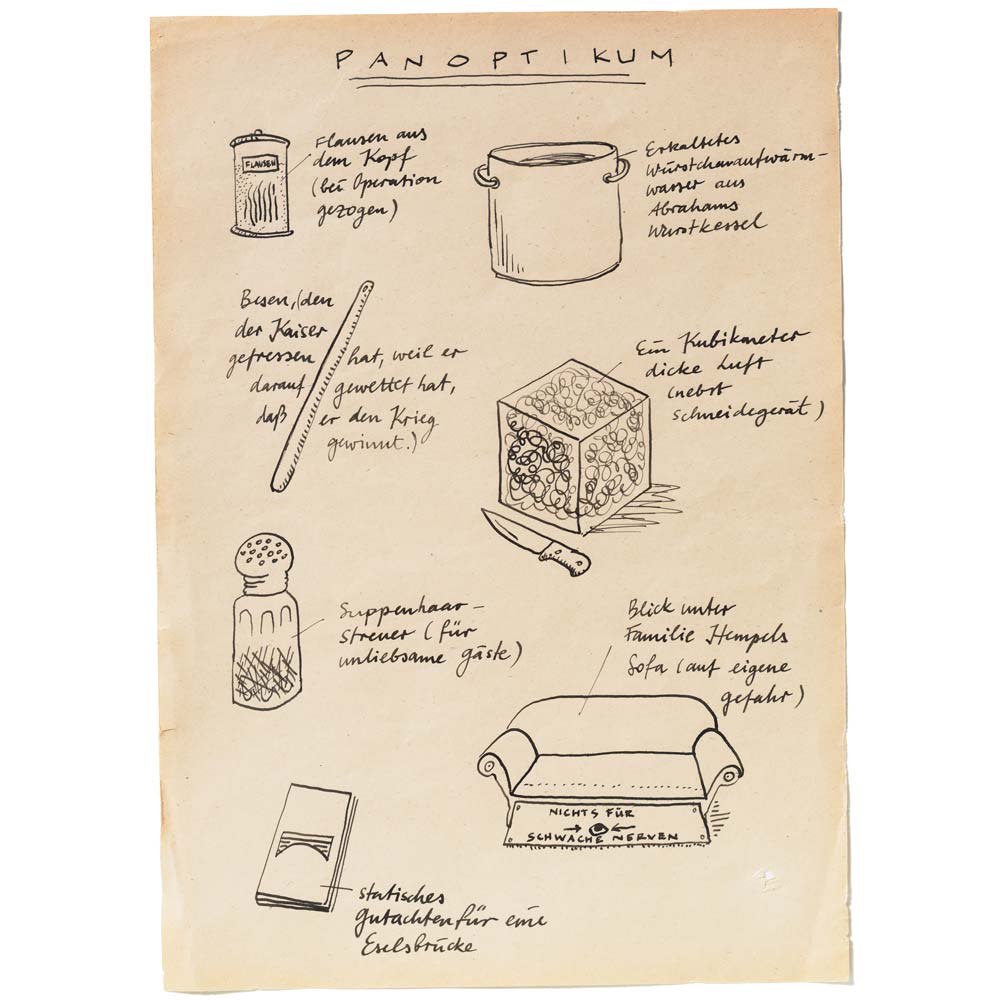 PANOPTIKUM
FLAUSEN
Flausen aus
dem Kopf
(bei Operation
gezogen)
Erkaltetes
Würstcharaufwärm-
wasser aus
Abrahams
Wurstkessel
Besen, (den
der Kaiser
gefressen hat, weil er
darauf gewettet hat,
daß er den Krieg
gewinnt.)
Ein Kubikmeter
dicke Luft
(nebst
Schneidegerät)
Suppenhaar-
streuer (für
unliebsame Gäste)
Blick unter
Familie Hempels
Sofa (auf eigene
Gefahr)
NICHTS FÜR
SCHWACHE NERVEN
Statisches
Gutachten für eine
Eselsbrücke